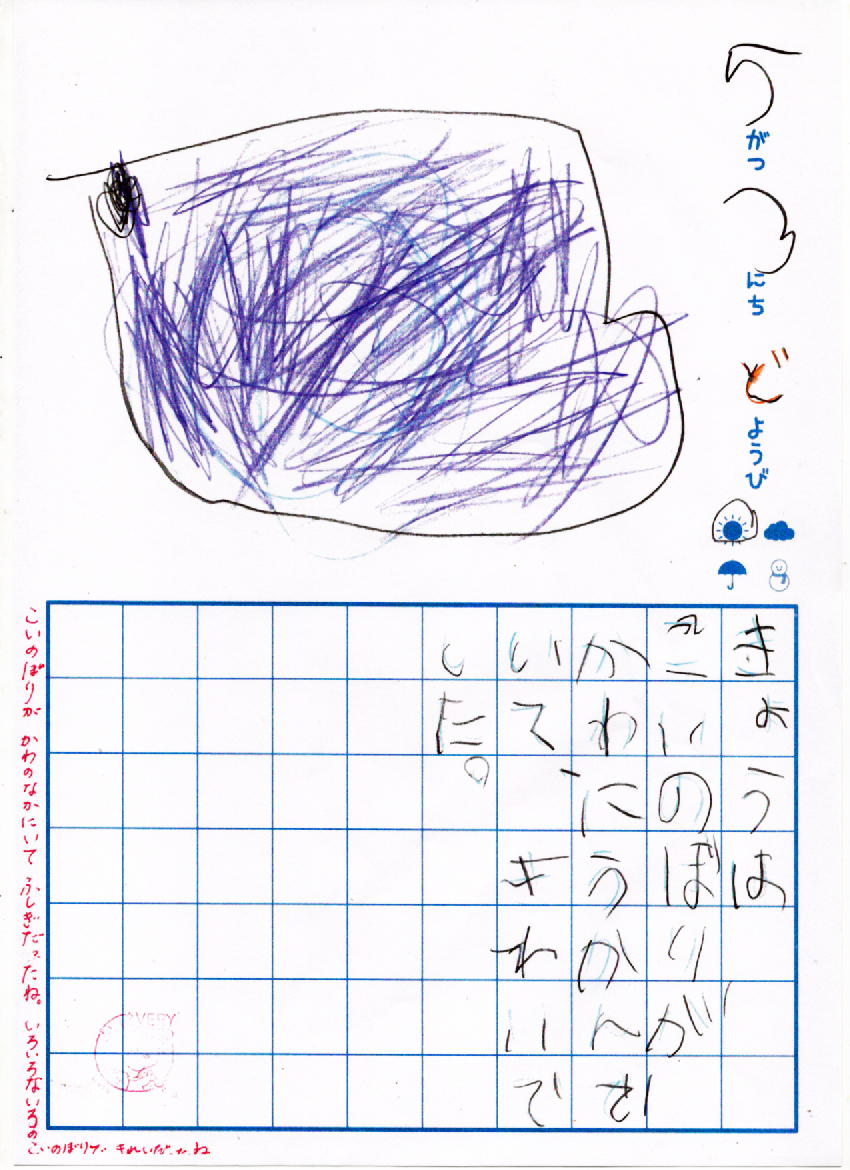 5がつ3にちどようび
きょうは
こいのぼりが
かわにうかんで
いて きれいで
した。
こいのぼりが かわのなかにいて ふしぎだったね。 いろいろないろの
こいのぼりで きれいだったね
VERY